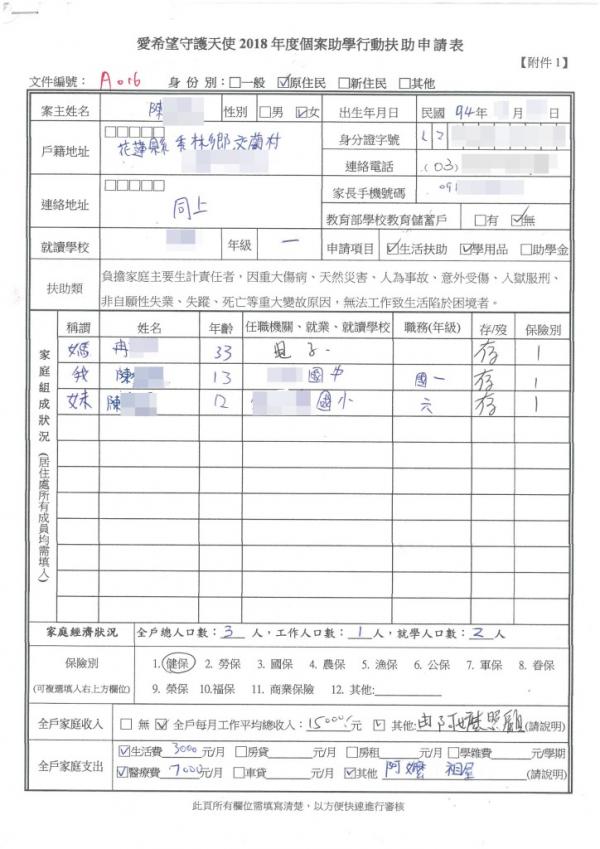 愛希望守護天使 2018 年度個案助學行動扶助申請表
【附件 1】
文件編號： A016 身份別：□一般 ☑原住民 □新住民 □其他
案主姓名 陳 性別 □男 ☑女 出生年月日 民國 94年 月 日
戶籍地址 □□□□□ 花蓮縣秀林鄉文蘭村 身分證字號 2
連絡電話 (03)
連絡地址 □□□□□ 同上 家長手機號碼 091
教育部學校教育儲蓄戶 □有 ☑無
就讀學校 年級 一 申請項目 ☑生活扶助 ☑學用品 □助學金
扶助類 負擔家庭主要生計責任者，因重大傷病、天然災害、人為事故、意外受傷、入獄服刑、
非自願性失業、失蹤、死亡等重大變故原因，無法工作致生活陷於困境者。
家庭組成狀況(居住處所有成員均需填入)
稱謂 姓名 年齡 任職機關、就業、就讀學校 職務(年級) 存/歿 保險別
媽 33 存 1
我 陳 13 國中 國一 存 1
妹 陳 12 國小 六 存 1
家庭經濟狀況 全戶總人口數：3 人，工作人口數：1 人，就學人口數：2 人
保險別 1.健保 2. 勞保 3. 國保 4. 農保 5. 漁保 6. 公保 7. 軍保 8. 眷保
(可複選填入右上方欄位) 9. 榮保 10.福保 11. 商業保險 12. 其他:
全戶家庭收入 □ 無 ☑ 全戶每月工作平均總收入：15000元 ☑ 其他:由阿嬤照顧(請說明)
全戶家庭支出 ☑生活費 3000 元/月 □房貸 元/月 □房租 元/月 □學雜費 元/學期
☑醫療費 7000 元/月 □車貸 元/月 ☑其他 阿嬤 租屋 (請說明)
此頁所有欄位需填寫清楚，以方便快速進行審核